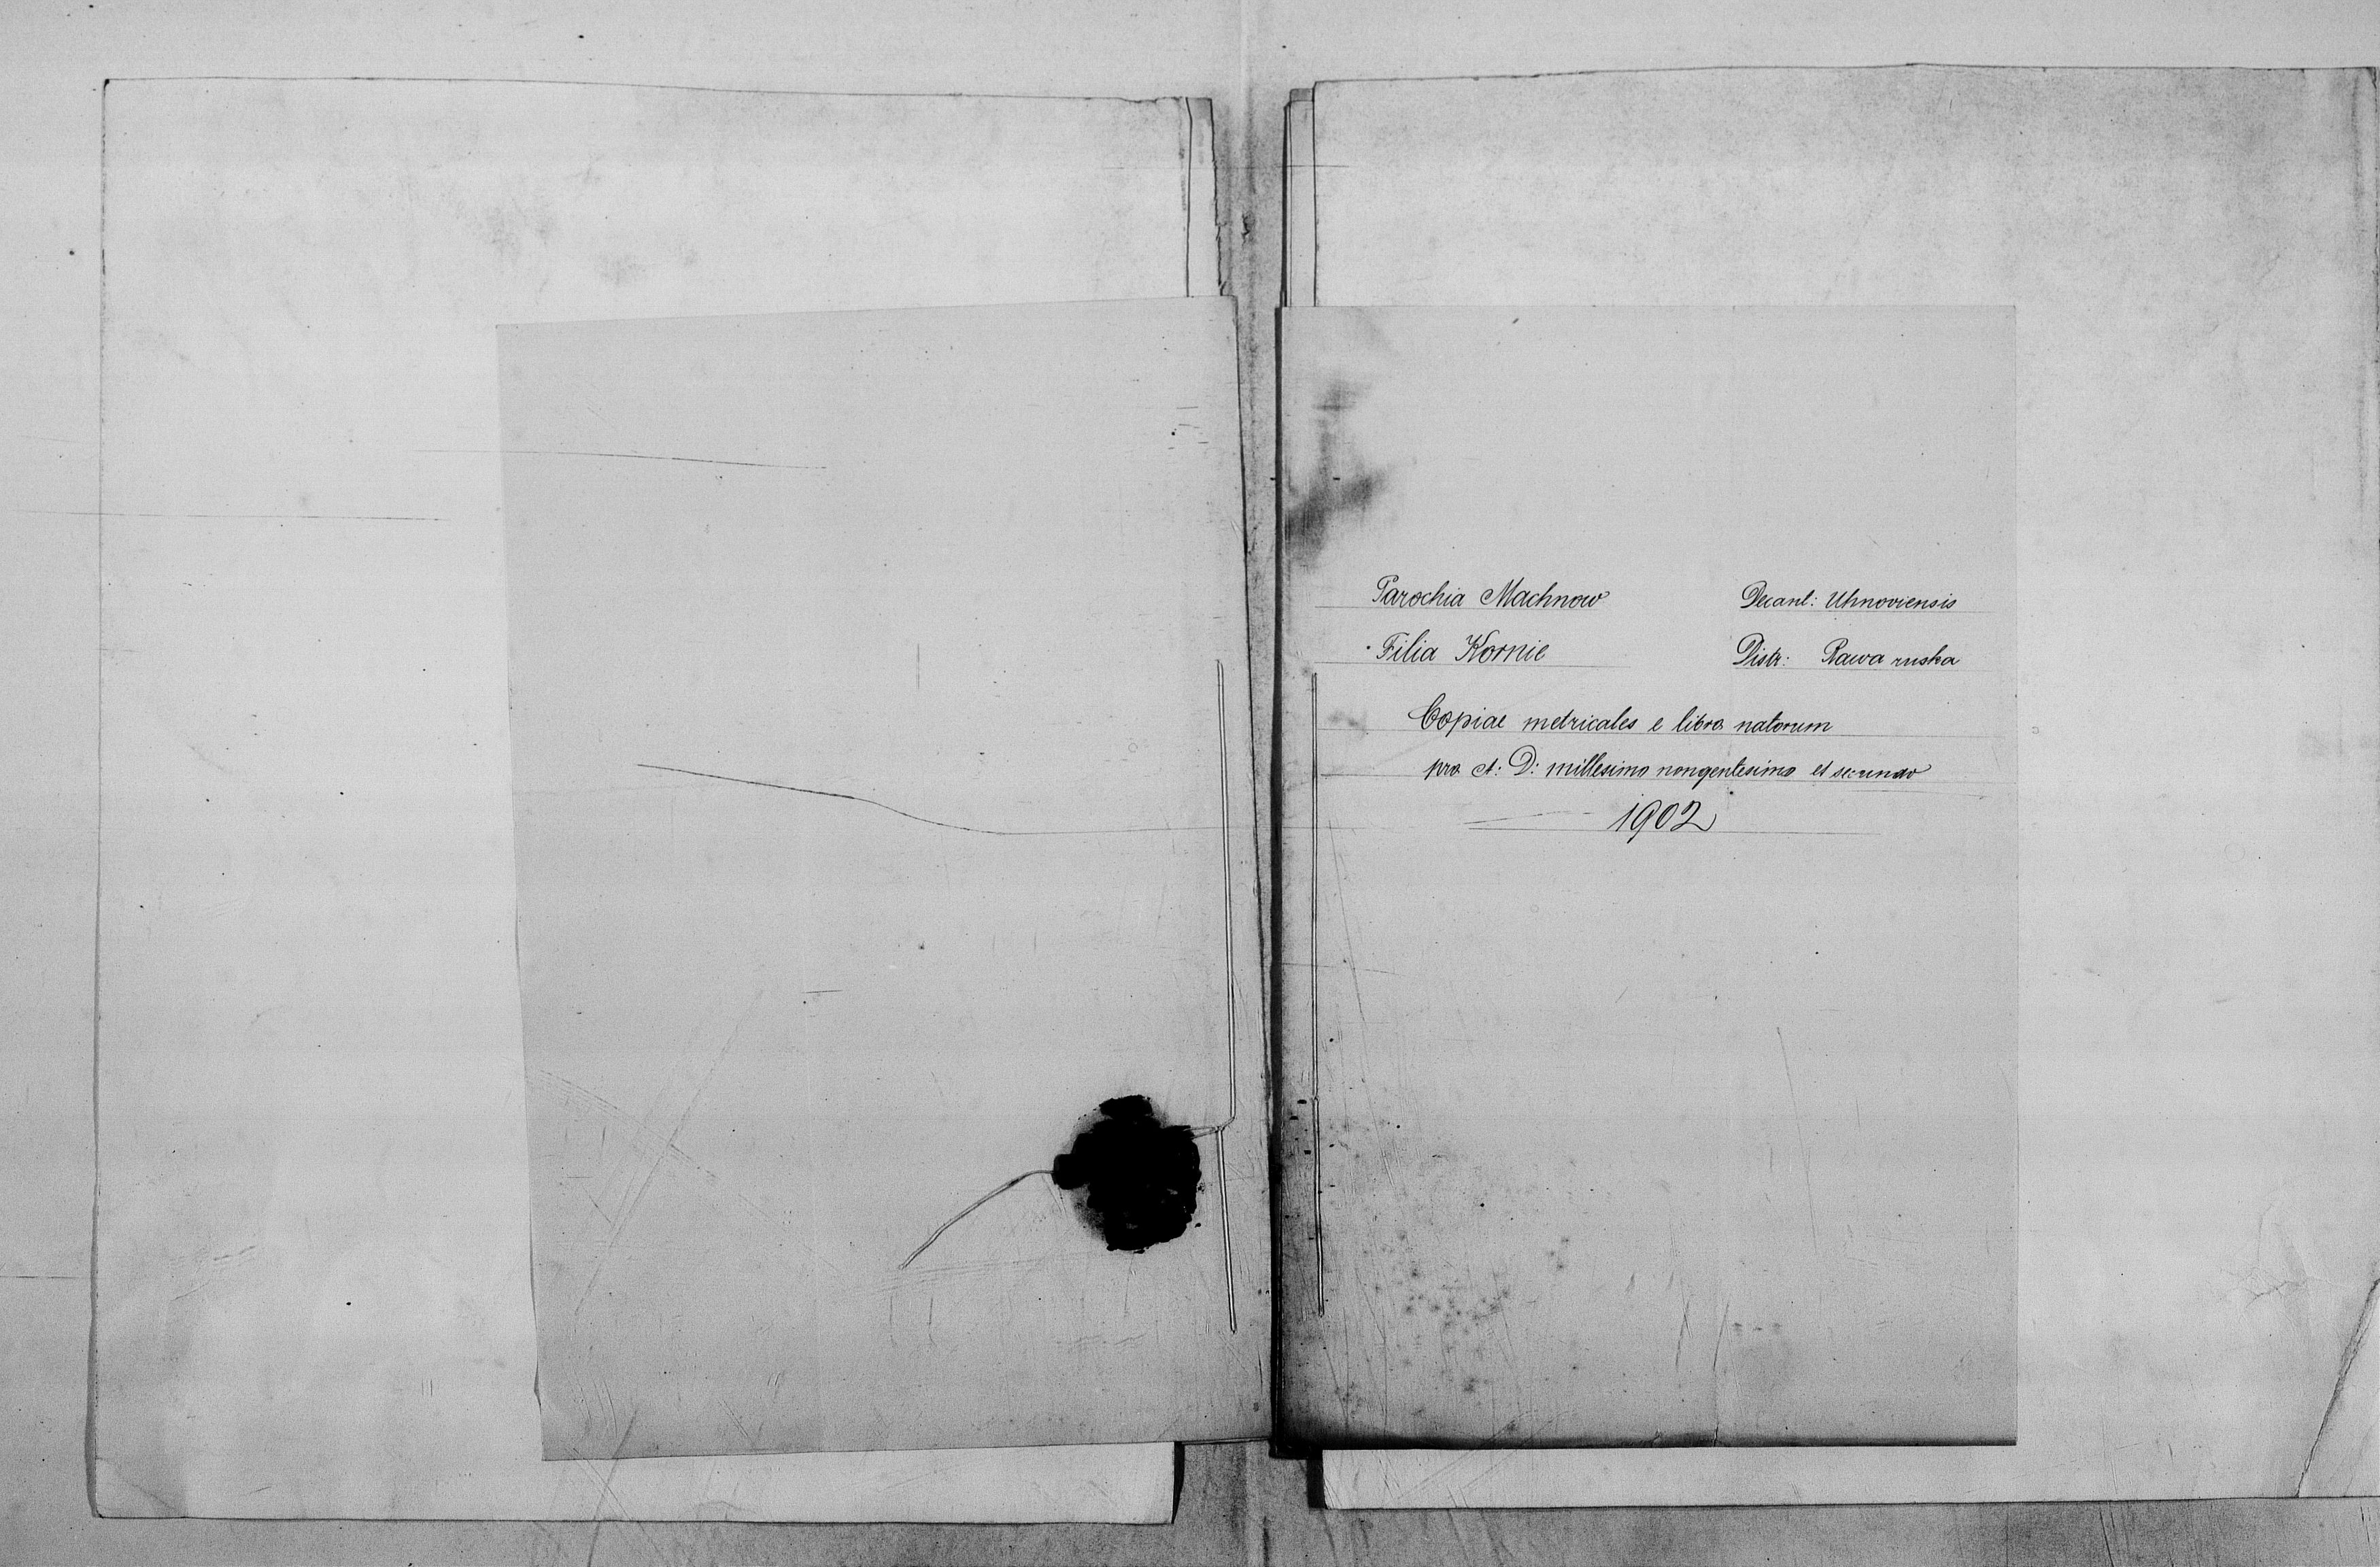 Parochia Machnow Decant: Uhnoviensis
Filia Kornie Distr: Rawa ruska
Copiae metricales e libro natorum
pro A: D: millesimo nongentesimo et secundo
1902